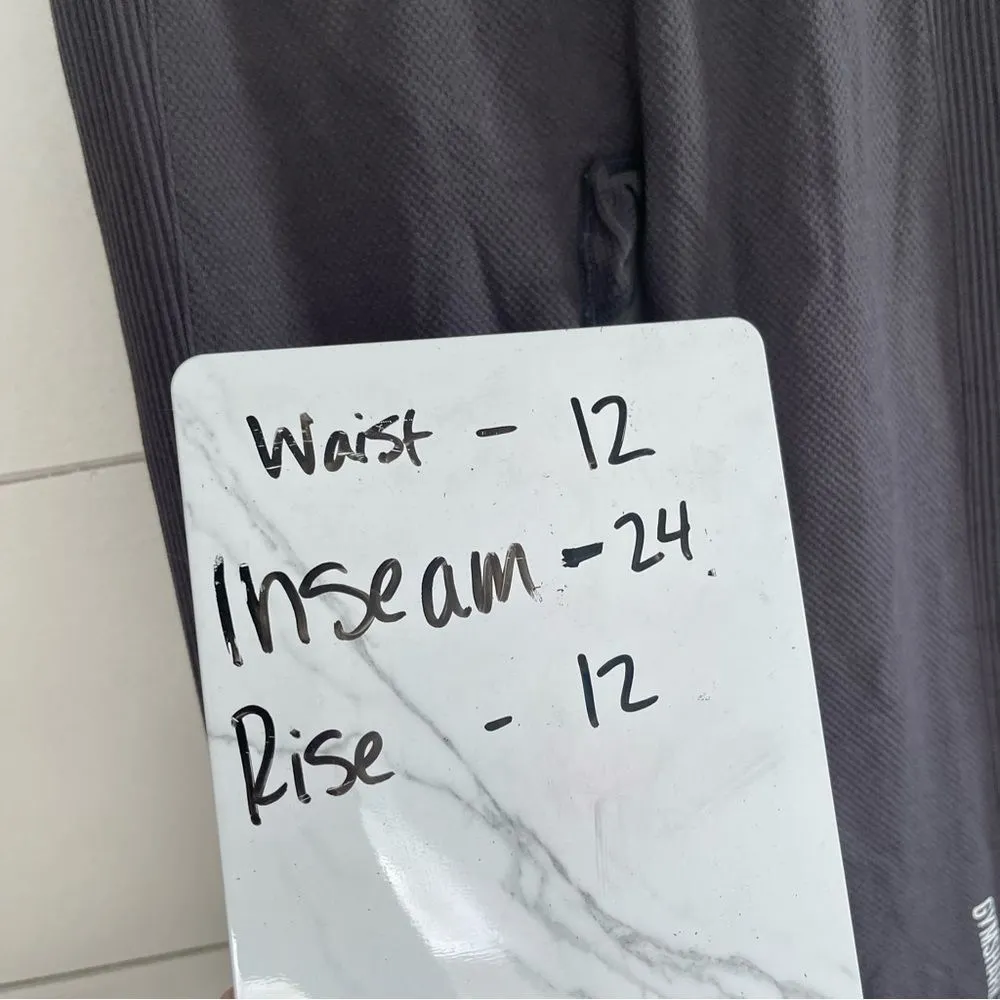 Waist - 12
Inseam - 24
Rise - 12